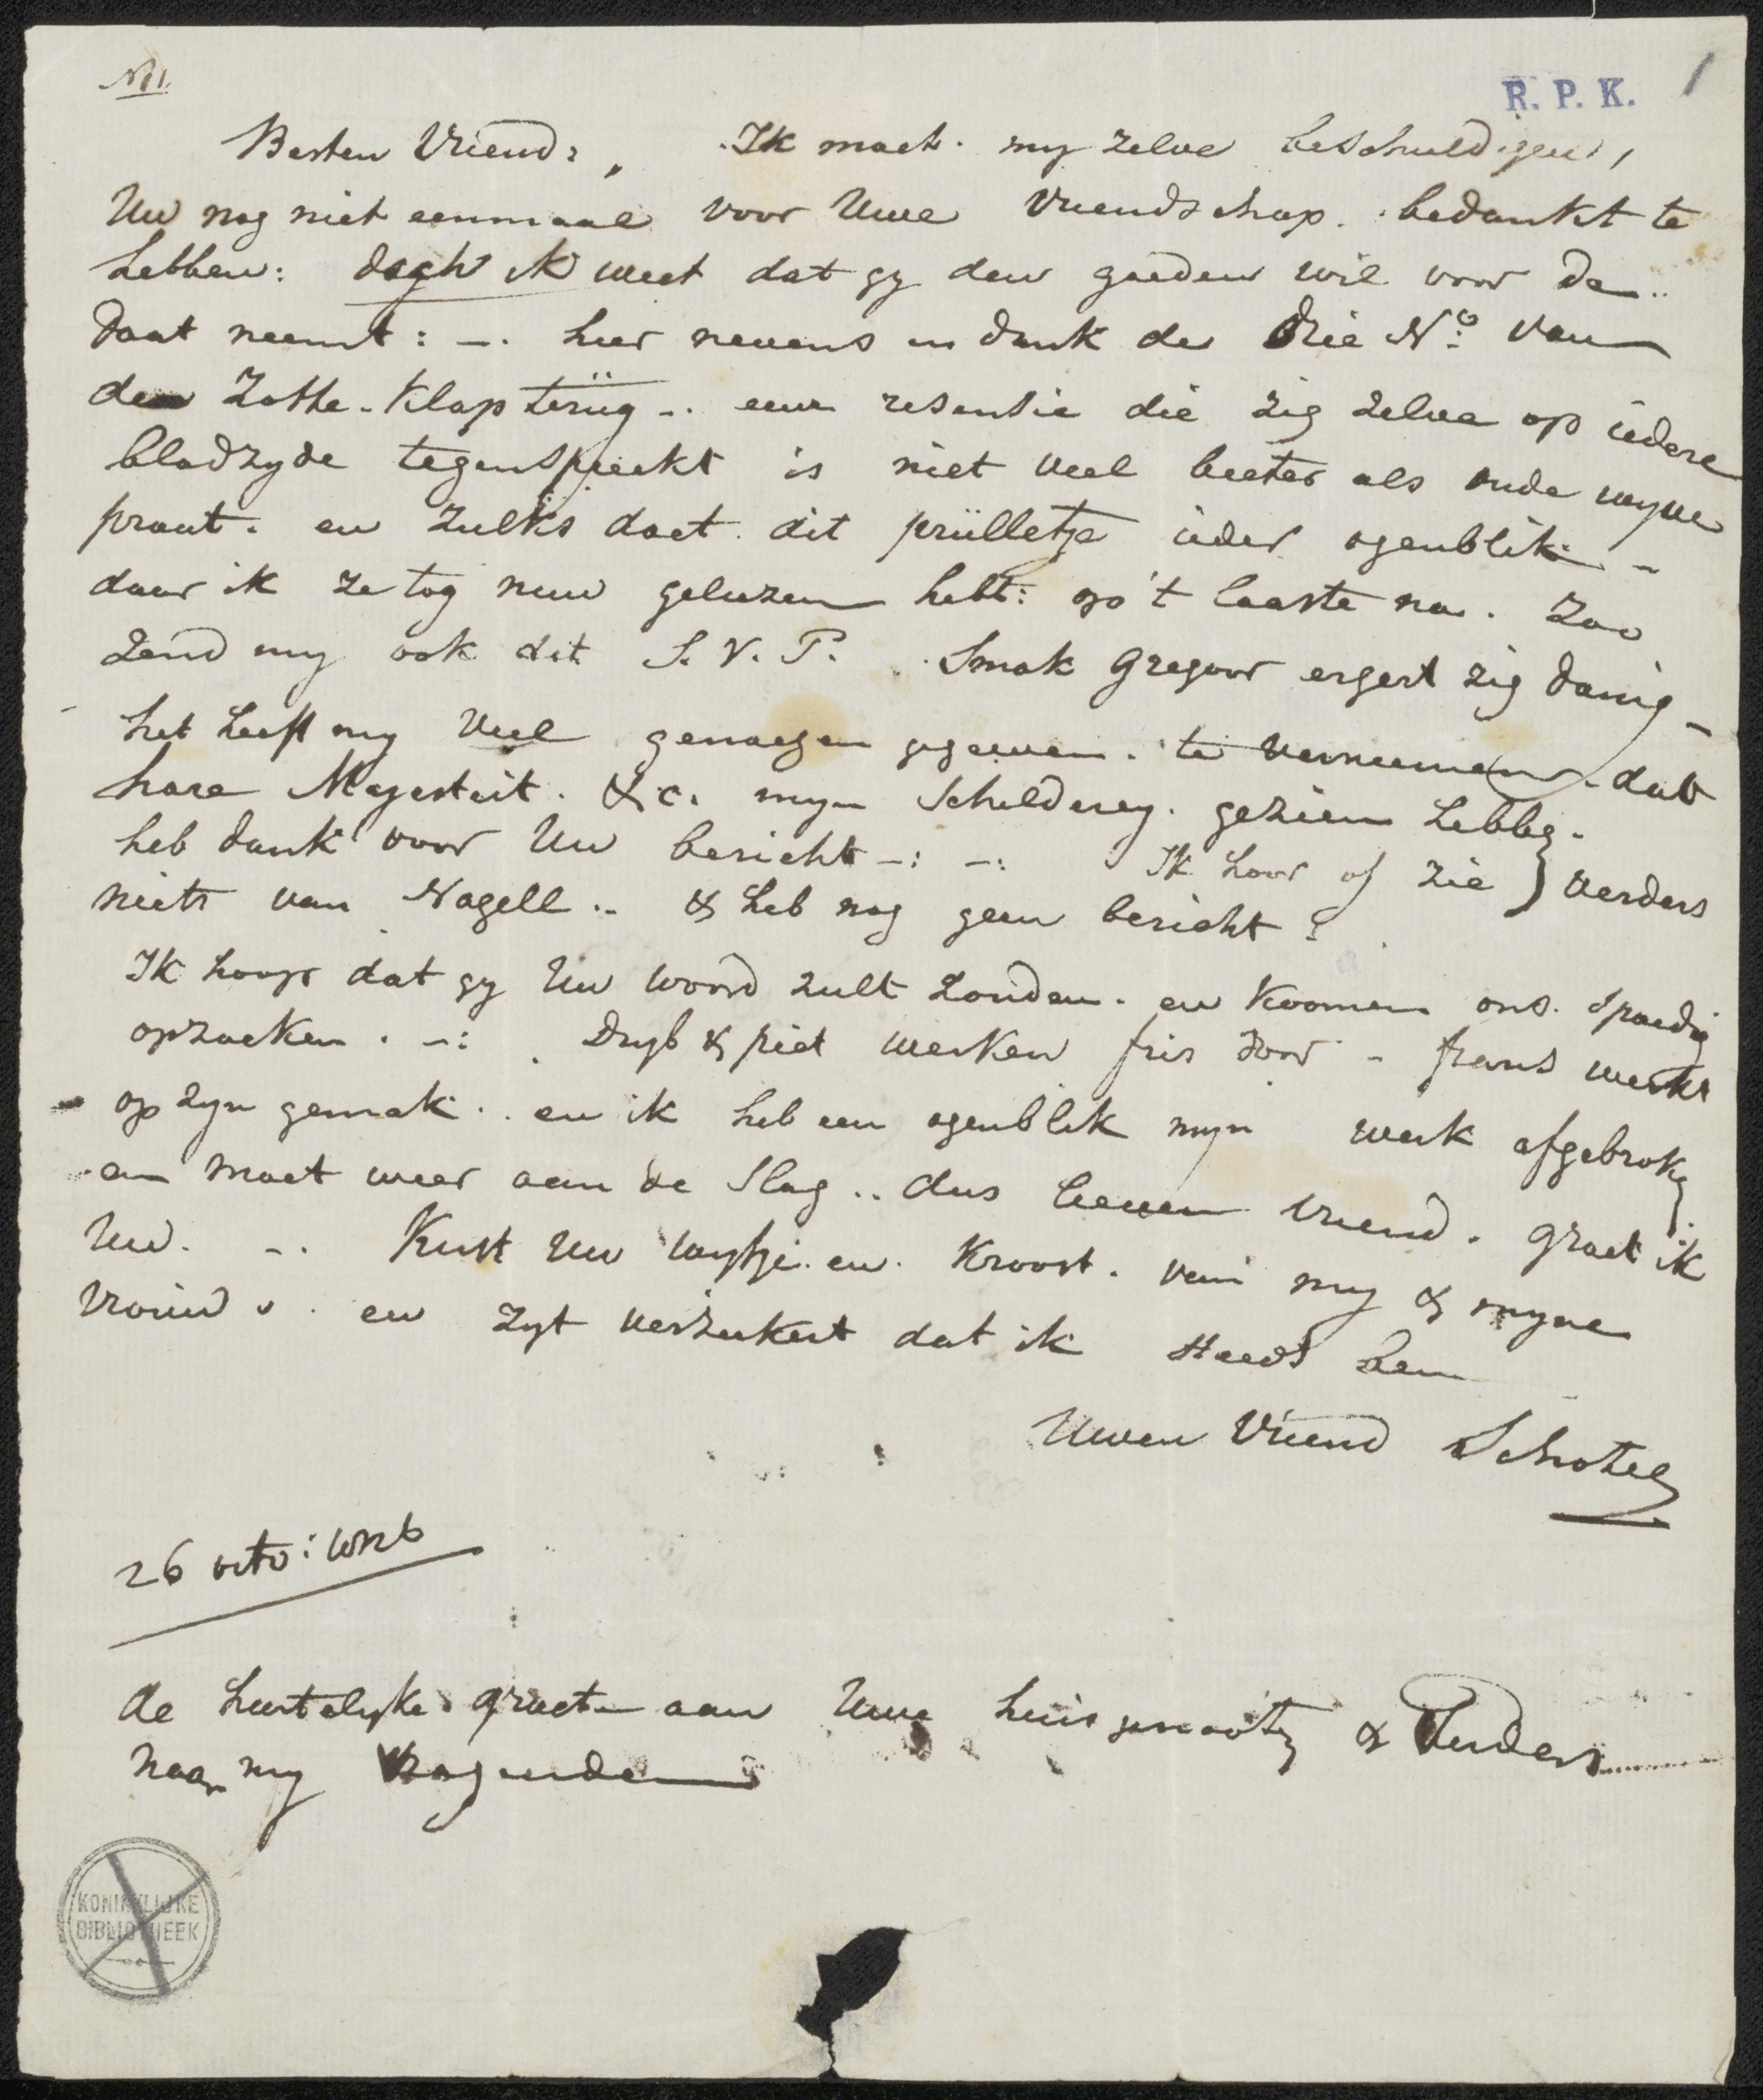 N 1.
R. P. K. 1
Besten Vriend, Ik moet my zelve beschuldigen,
Uw nog niet eenmaal voor Uwe Vriendschap. bedankt te
hebben: dogh ik weet dat gy den goeden wil voor de..
daat neemt: —. hier nevens in dank de drie No. van
de Zotte-Klap terüg -. eene resensie die zig zelve op iedere
bladzyde tegenspreekt is niet veel beeter als oude wyve
praat. en zulks doet dit prülletje ieder ogenblik -
daar ik ze tog nuw geleezen hebt: op 't laaste na. Zoo
Zend my ook dit S. V. P. Smak Gregoor ergert zig danig -
het heeft my veel genoegen gegeeven. te verneemen. dat
hare Majesteit. &c. myn Schilderey. gezien hebbe.
heb dank voor Uw bericht -: -: Ik hoor of zie } verders
niets van Nagell .. & heb nog geen bericht?
Ik hoop dat gy Uw woord zult houden. en koomen ons. spoedig
opzoeken. -: Dryb & piet werken fris door - frans werkt
op zyn gemak .. en ik heb een ogenblik myn werk afgebroken
en moet weer aan de slag .. dus lieven vriend. groet ik
Uw. -. Kust Uw wyfje. en. Kroost. van my & myne
vrouw. en zyt verzeekert dat ik steeds ben
Uwen Vriend Schotel
26 octo:
de hertelyke groete aan Uwe huisgenooten & Verders......
naar my vragende
KONINKLIJKE
BIBLIOTHEEK